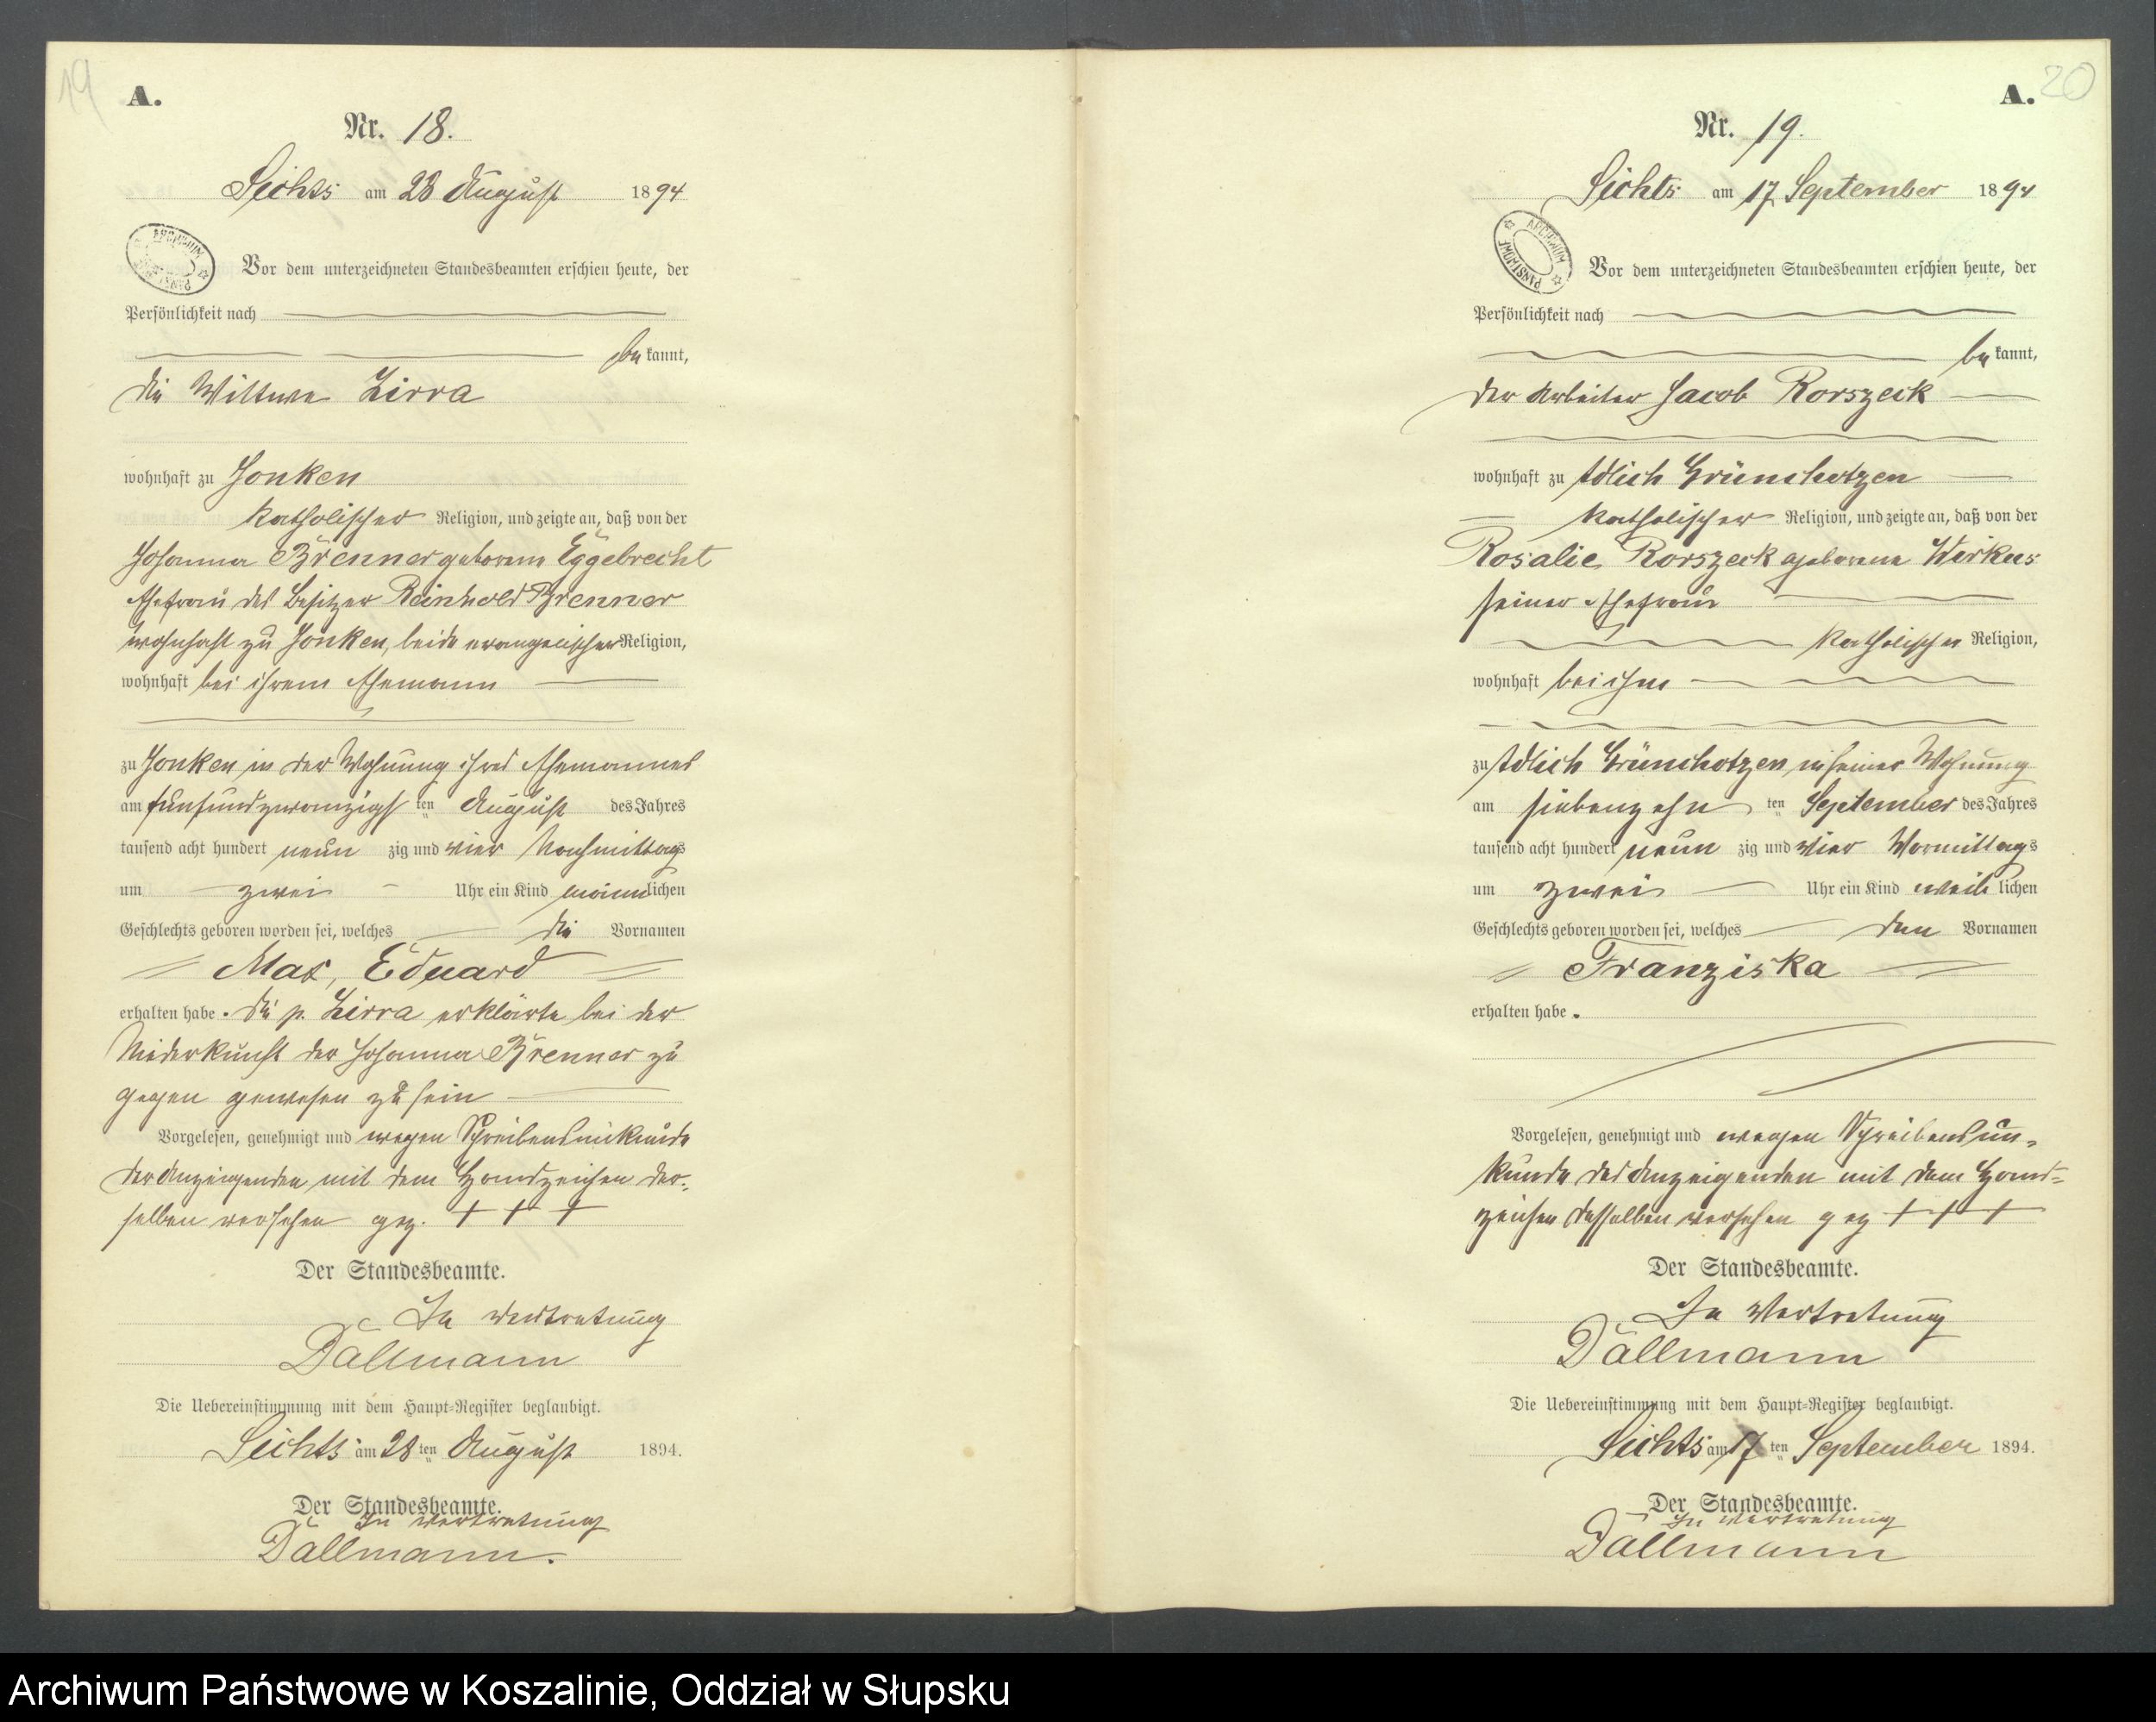 19
A.
Nr. 18.
Sichts am 28 August 1894
Vor dem unterzeichneten Standesbeamten erschien heute, der
Persönlichkeit nach
bekannt,
die Wittwe Zirra
wohnhaft zu Jonken
katholischer Religion, und zeigte an, daß von der
Johanna Brenner geborene Eggebrecht
Ehefrau des Besitzer Reinhold Brenner
wohnhaft zu Jonken, beide evangelischer Religion,
wohnhaft bei ihrem Ehemann
zu Jonken in der Wohnung ihres Ehemannes
am fünfundzwanzigsten August des Jahres
tausend acht hundert neun zig und vier Nachmittags
um zwei Uhr ein Kind männlichen
Geschlechts geboren worden sei, welches die Vornamen
Max, Eduard
erhalten habe. Die p. Zirra erklärte bei der
Niederkunft der Johanna Brenner zu
gegen gewesen zu sein
Vorgelesen, genehmigt und wegen Schreibensunkunde
der Anzeigenden mit dem Handzeichen der-
selben versehen gez. + + +
Der Standesbeamte.
In Vertretung
Dallmann
Die Uebereinstimmung mit dem Haupt-Register beglaubigt.
Sichts am 28 ten August 1894.
Der Standesbeamte.
In Vertretung
Dallmann.
20
A.
Nr. 19.
Sichts am 17 September 1894
ARCHIWUM PAŃSTWOWE
Vor dem unterzeichneten Standesbeamten erschien heute, der
Persönlichkeit nach
bekannt,
der Arbeiter Jacob Rorszeck
wohnhaft zu Adlich Grünchotzen
katholischer Religion, und zeigte an, daß von der
Rosalie Rorszeck geborene Wirkus
seiner Ehefrau
katholischer Religion,
wohnhaft bei ihm
zu Adlich Grünchotzen in seiner Wohnung
am siebenzehn ten September des Jahres
tausend acht hundert neun zig und vier Vormittags
um zwei Uhr ein Kind weiblichen
Geschlechts geboren worden sei, welches den Vornamen
Franziska
erhalten habe.
Vorgelesen, genehmigt und wegen Schreibensun-
kunde des Anzeigenden mit dem Hand-
zeichen desselben versehen gez + + +
Der Standesbeamte.
In Vertretung
Dallmann
Die Uebereinstimmung mit dem Haupt-Register beglaubigt.
Sichts am 17 ten September 1894.
Der Standesbeamte.
In Vertretung
Dallmann
Archiwum Państwowe w Koszalinie, Oddział w Słupsku